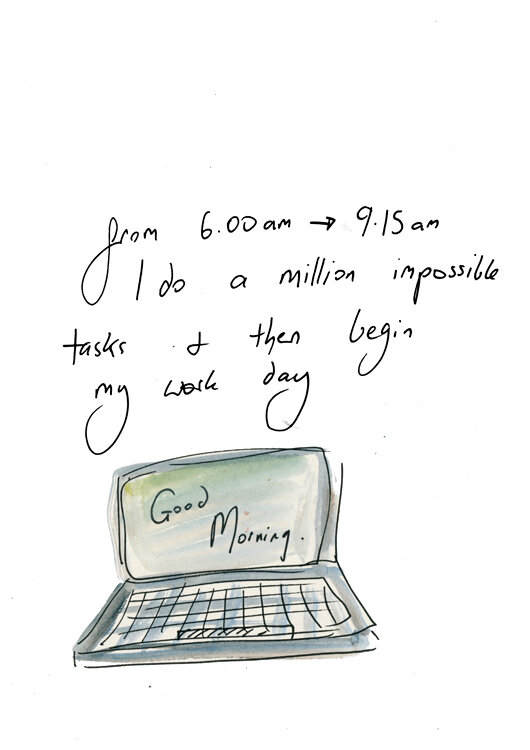 from 6.00am → 9.15am
I do a million impossible
tasks & then begin
my work day
Good
Morning.